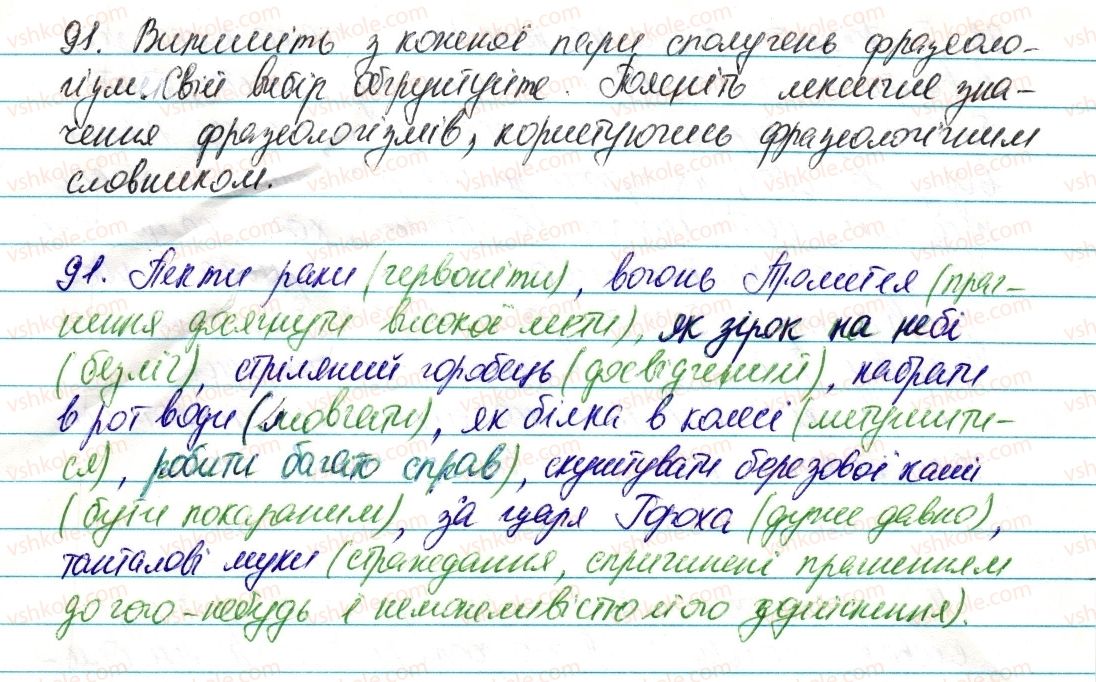 91. Випишіть з кожної пари сполучень фразеоло-
гізм. Свій вибір обґрунтуйте. Поясніть лексичне зна-
чення фразеологізмів, користуючись фразеологічним
словником.
91. Пекти раки (червоніти), вогонь Прометея (праг-
нення досягнути високої мети), як зірок на небі
(безліч), стріляний горобець (досвідчений), набрати
в рот води (мовчати), як білка в колесі (метушити-
ся), робити багато справ), скуштувати березової каші
(бути покараним), за царя Гороха (дуже давно),
танталові муки (страждання, спричинені прагненням
до чого-небудь і неможливістю його здійснення).